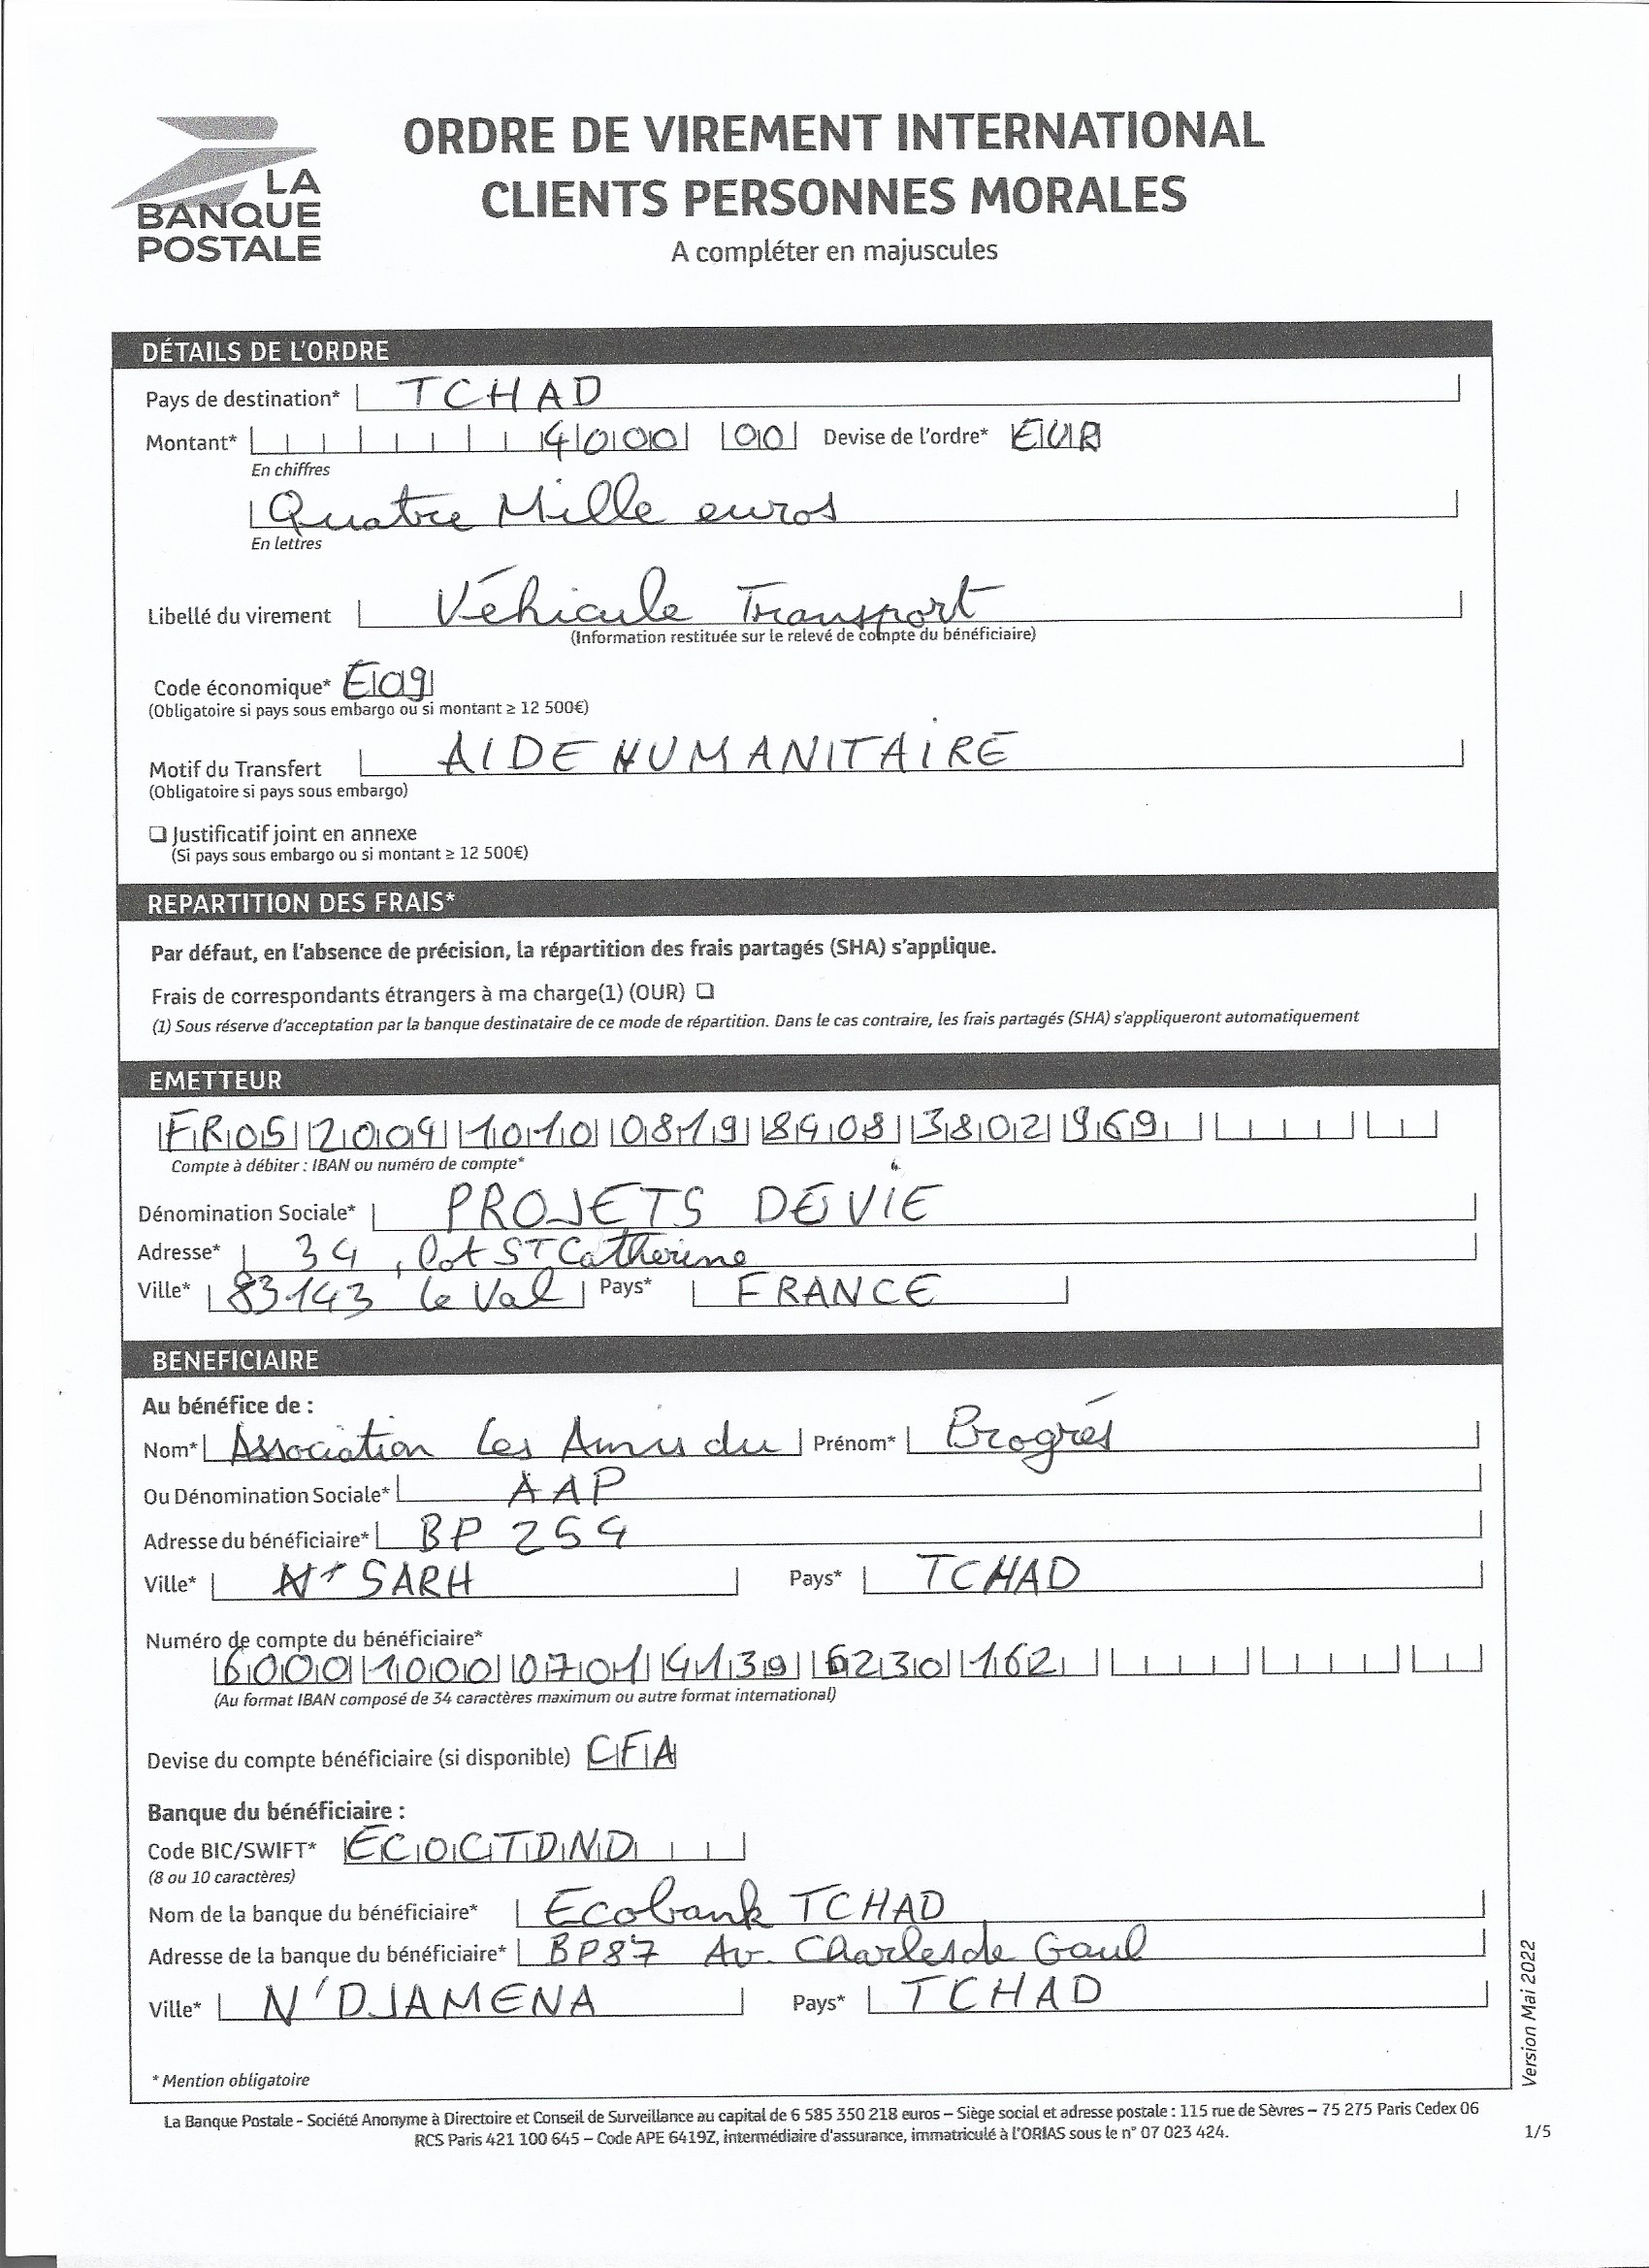 LA
BANQUE
POSTALE
ORDRE DE VIREMENT INTERNATIONAL
CLIENTS PERSONNES MORALES
A compléter en majuscules
DÉTAILS DE L'ORDRE
Pays de destination* TCHAD
Montant* 4000 00 Devise de l'ordre* EUR
En chiffres
Quatre Mille euros
En lettres
Libellé du virement Véhicule Transport
(Information restituée sur le relevé de compte du bénéficiaire)
Code économique* E09
(Obligatoire si pays sous embargo ou si montant ≥ 12 500€)
Motif du Transfert AIDE HUMANITAIRE
(Obligatoire si pays sous embargo)
❑ Justificatif joint en annexe
(Si pays sous embargo ou si montant ≥ 12 500€)
REPARTITION DES FRAIS*
Par défaut, en l'absence de précision, la répartition des frais partagés (SHA) s'applique.
Frais de correspondants étrangers à ma charge(1) (OUR) ❑
(1) Sous réserve d'acceptation par la banque destinataire de ce mode de répartition. Dans le cas contraire, les frais partagés (SHA) s'appliqueront automatiquement
EMETTEUR
FR05 2004 1010 0819 8408 3802 969
Compte à débiter : IBAN ou numéro de compte*
Dénomination Sociale* PROJETS DE VIE
Adresse* 34, lot ST Catherine
Ville* 83143 le Val Pays* FRANCE
BENEFICIAIRE
Au bénéfice de :
Nom* Association les Amis du Prénom* Progrés
Ou Dénomination Sociale* AAP
Adresse du bénéficiaire* BP 254
Ville* SARH Pays* TCHAD
Numéro de compte du bénéficiaire*
6000 1000 0701 4139 6230 162
(Au format IBAN composé de 34 caractères maximum ou autre format international)
Devise du compte bénéficiaire (si disponible) CFA
Banque du bénéficiaire :
Code BIC/SWIFT* ECOCTDND
(8 ou 10 caractères)
Nom de la banque du bénéficiaire* Ecobank TCHAD
Adresse de la banque du bénéficiaire* BP87 Av. Charles de Gaul
Ville* N'DJAMENA Pays* TCHAD
* Mention obligatoire
Version Mai 2022
La Banque Postale - Société Anonyme à Directoire et Conseil de Surveillance au capital de 6 585 350 218 euros – Siège social et adresse postale : 115 rue de Sèvres – 75 275 Paris Cedex 06
RCS Paris 421 100 645 – Code APE 6419Z, intermédiaire d'assurance, immatriculé à l'ORIAS sous le n° 07 023 424.
1/5